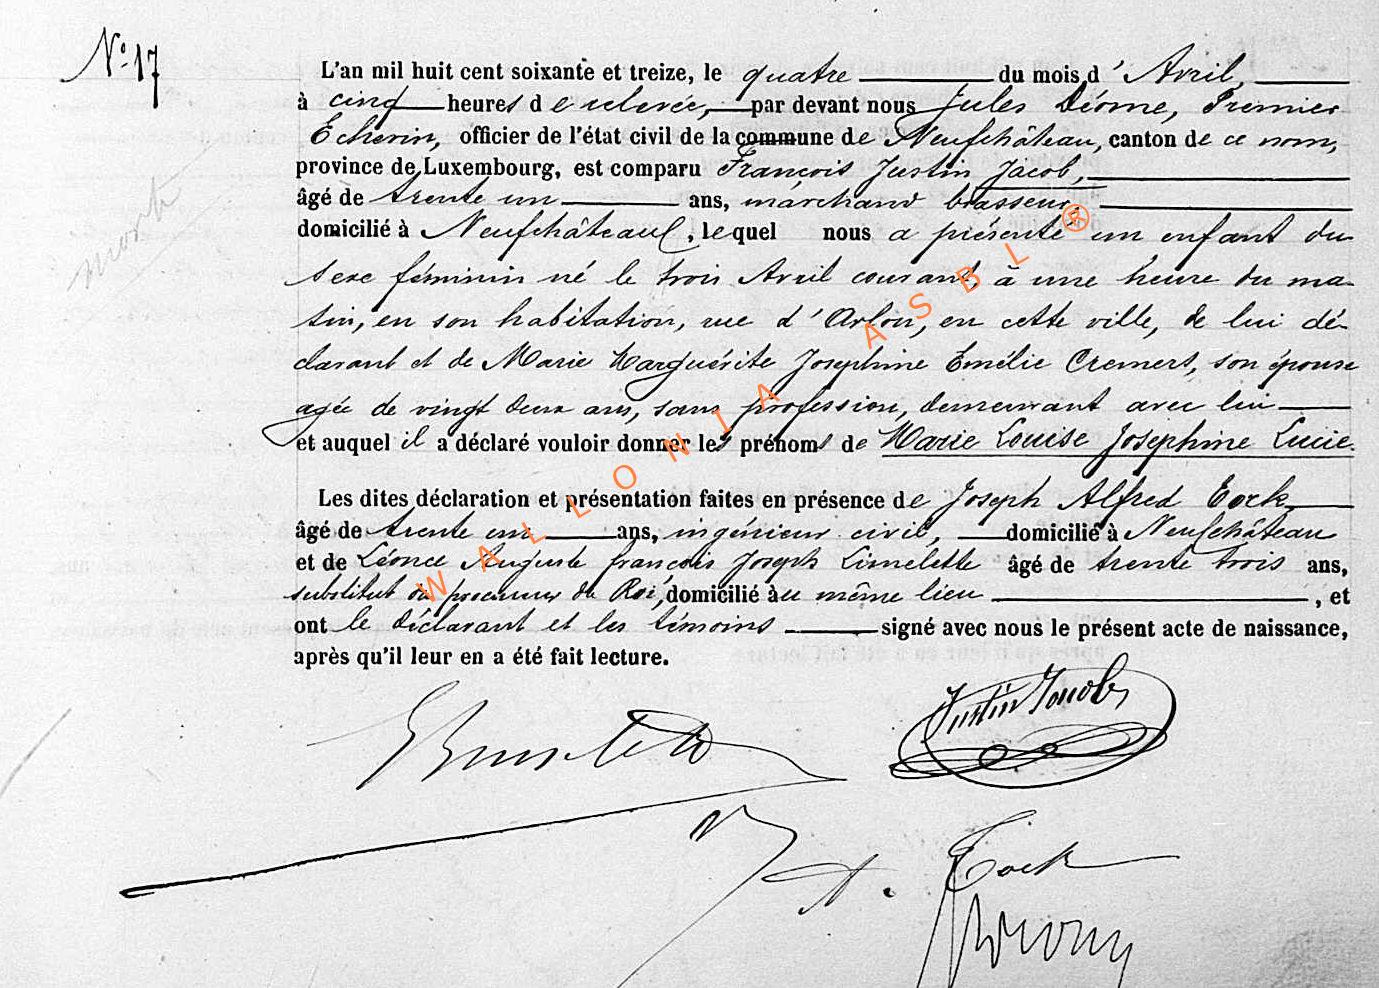 N° 17
L'an mil huit cent soixante et treize, le quatre du mois d' Avril
à cinq heures de relevée, par devant nous Jules Déome, Premier
Echevin, officier de l'état civil de la commune de Neufchâteau, canton de ce nom,
province de Luxembourg, est comparu François Justin Jacob,
âgé de trente un ans, marchand brasseur,
domicilié à Neufchâteau, lequel nous a présenté un enfant du
sexe féminin né le trois Avril courant, à une heure du ma-
tin, en son habitation, rue d'Arlon, en cette ville, de lui dé-
clarant et de Marie Marguérite Josephine Emélie Cremers, son épouse
agée de vingt deux ans, sans profession, demeurant avec lui
et auquel il a déclaré vouloir donner les prénoms de Marie Louise Josephine Lucie.
Les dites déclaration et présentation faites en présence de Joseph Alfred
âgé de trente un ans, ingénieur civil, domicilié à Neufchâteau
et de Léonce Auguste françois Joseph Limelette âgé de trente trois ans,
substitut du procureur du Roi, domicilié au même lieu , et
ont le déclarant et les témoins signé avec nous le présent acte de naissance,
après qu'il leur en a été fait lecture.
Justin Jacob
WALLONIA ASBL ®